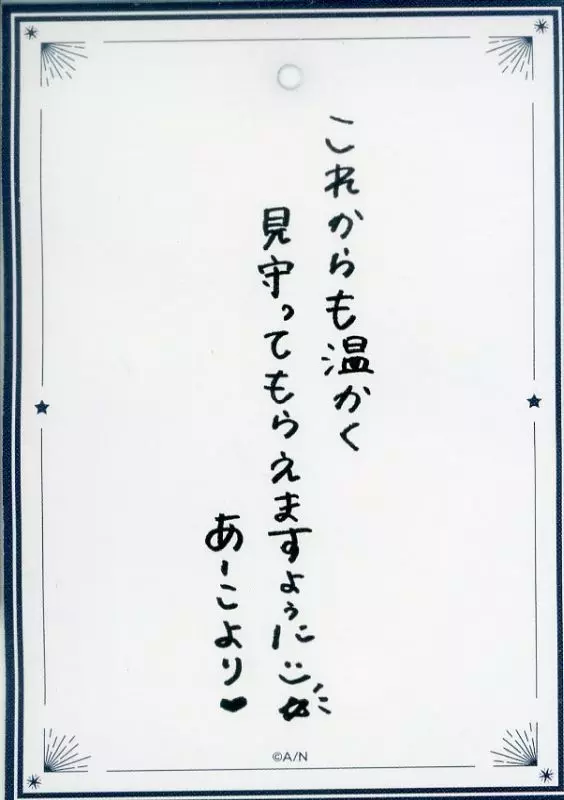 これからも温かく
見守ってもらえますように
あーこより♥
©A/N